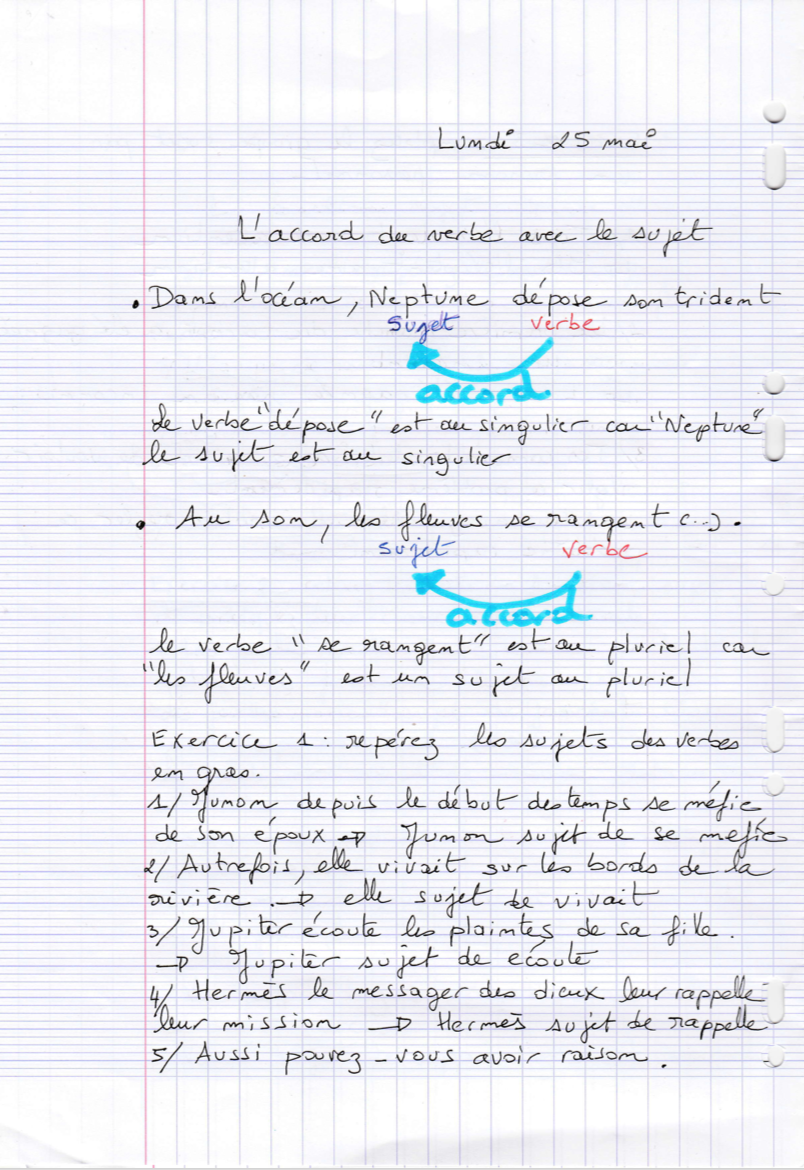 Lundi 25 mai
L'accord du verbe avec le sujet
• Dans l'océan, Neptune dépose son trident
sujet verbe
accord
le verbe "dépose" est au singulier car "Neptune"
le sujet est au singulier
• Au son, les fleuves se rangent (...).
sujet verbe
accord
le verbe "se rangent" est au pluriel car
"les fleuves" est un sujet au pluriel
Exercice 1 : repérez les sujets des verbes
en gras.
1/ Junon depuis le début des temps se méfie
de son époux → Junon sujet de se mefie
2/ Autrefois, elle vivait sur les bords de la
rivière. → elle sujet de vivait
3/ Jupiter écoute les plaintes de sa fille.
→ Jupiter sujet de écoute
4/ Hermès le messager des dieux leur rappelle
leur mission → Hermès sujet de rappelle
5/ Aussi pouvez-vous avoir raison.